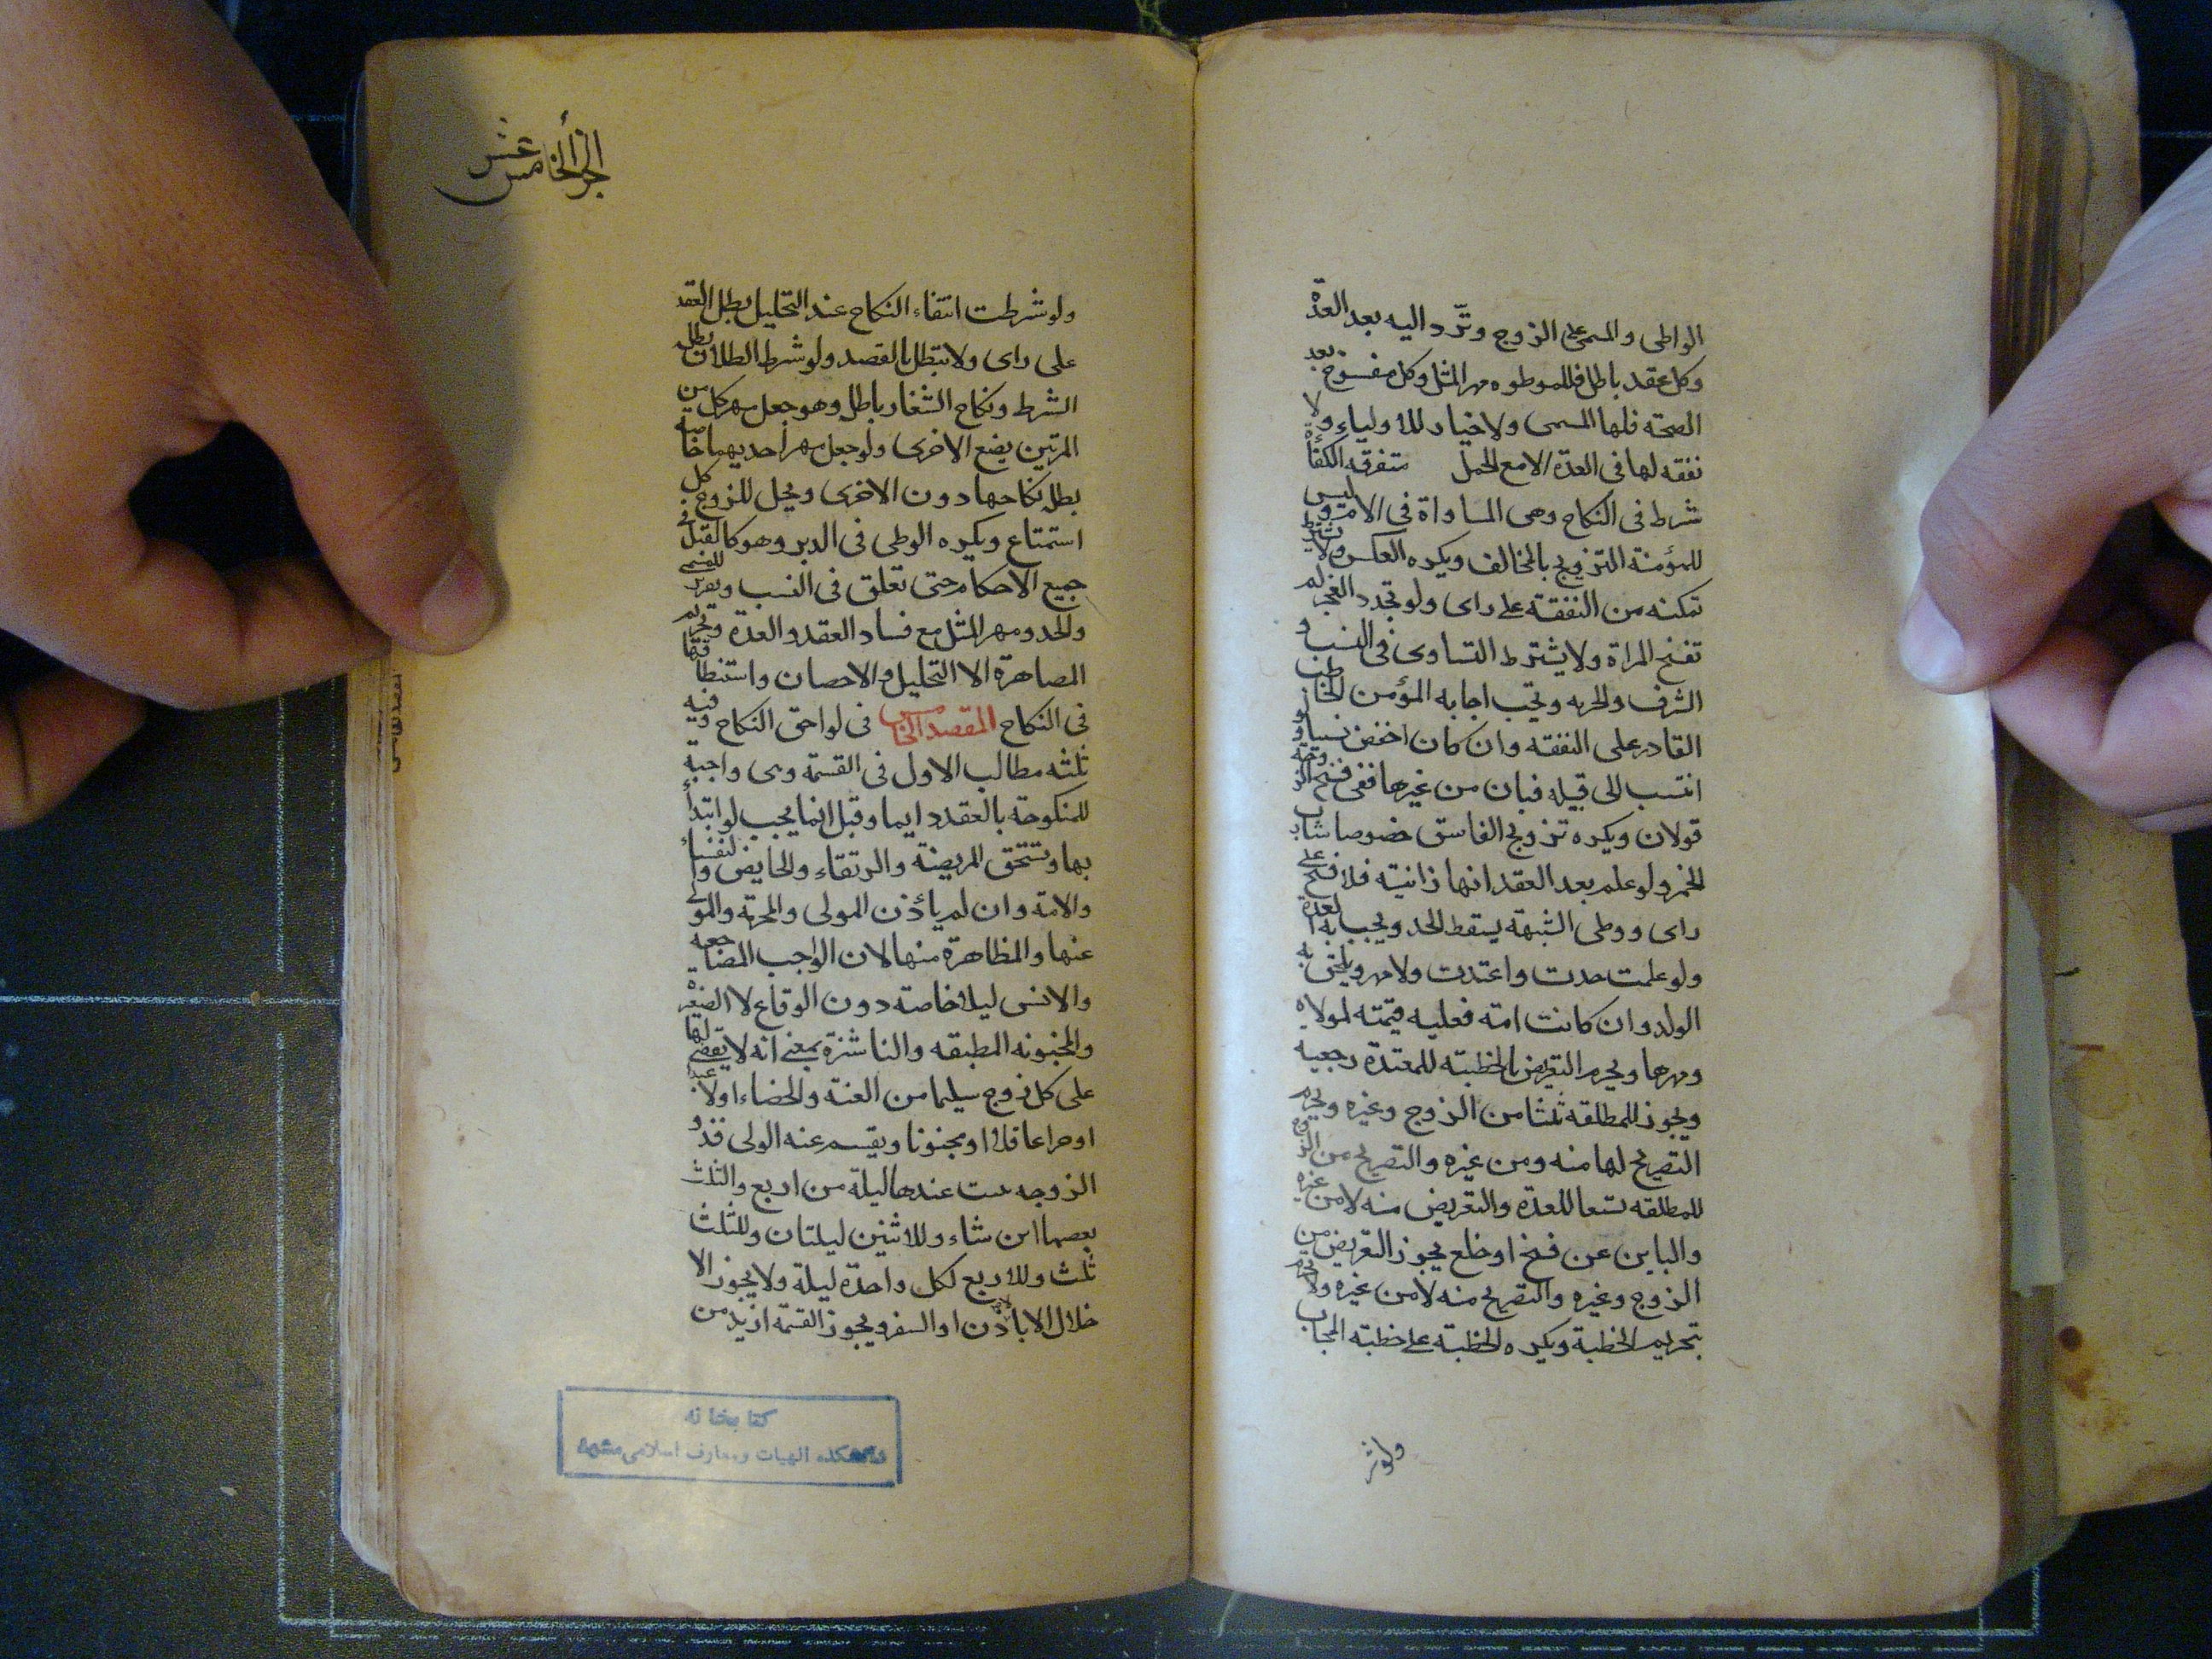 الواطى والمسمى على الزوج وتردّ اليه بعد العدّة
وكل عقد باطل فللموطوه مهر المثل وكل مفسوخ بعد
الصحة فلها المسمى ولا خيار للاولياء ولا
نفقه لها فى العدّة الا مع الحمل متفرقه الكفأة
شرط فى النكاح وهى المساواة فى الامر وليس
للمؤمنة التزويج بالمخالف ويكره العكس ولا يشترط
تمكنه من النفقة على راى ولو تجدد العجز لم
تفسخ المراة ولا يشترط التساوى فى النسب و
الشرف والحريه وتجب اجابه المؤمن الخاطب
القادر على النفقه وان كان اخفض نسبا ولو
انتسب الى قبيله فبان من غيرها ففى فسخ الزوجة
قولان ويكره تزويج الفاسق خصوصا شارب
الخمر ولو علم بعد العقد انها زانية فلا فسخ على
راى ووطى الشبهة يسقط الحد ويجب به العدة
ولو علمت حدت واعتدت ولا مهر ويلحق به
الولد وان كانت امة فعليه قيمته لمولاه
ومهرها ويحرم التعريض بالخطبة للمعتدة رجعيه
ويجوز للمطلقه ثلثا من الزوج وغيره ويحرم
التصريح لها منه ومن غيره والتصريح من الزوج
للمطلقه تسعا للعدة والتعريض منه لا من غيره
والباين عن فسخ او خلع يجوز التعريض من
الزوج وغيره والتصريح منه لا من غيره ولا تحرم
بتحريم الخطبة ويكره الخطبة على خطبة المجاب
ولو شر
الجزؤ الخامس عشر
ولو شرطت انتفاء النكاح عند التحليل بطل العقد
على راى ولا تبطل بالقصد ولو شرط الطلاق بطل
الشرط ونكاح الشغار باطل وهو جعل مهر كل من
المرتين بضع الاخرى ولو جعل مهر احديهما خاصة
بطل نكاحها دون الاخرى ويحل للزوج كل
استمتاع ويكره الوطى فى الدبر وهو كالقبل فى
جميع الاحكام حتى تعلق فى النسب وتقرير المسمى
والحد ومهر المثل مع فساد العقد والعدة وتحريم
المصاهرة الا التحليل والاحصان واستنطاقها
فى النكاح المقصد الخامس فى لواحق النكاح وفيه
ثلثه مطالب الاول فى القسمة وهى واجبة
للمنكوحة بالعقد دايما وقيل انما يجب لو ابتدأ
بها وتستحق المريضة والرتقاء والحايض والنفساء
والامة وان لم يأذن المولى والمحرمة والمولى
عنها والمظاهرة منها لان الواجب المضاجعه
والانس ليلا خاصة دون الوقاع لا الصغيرة
والمجنونه المطبقه والناشزة بمعنى انه لا يقضى لها
على كل زوج سليما من العنة والخصاء او لا عبدا
او حرا عاقلا او مجنونا ويقسم عنه الولى فذو
الزوجه يبيت عندها ليلة من اربع والثلث
يضعها اين شاء وللاثنين ليلتان وللثلث
ثلث وللاربع لكل واحدة ليلة ولا يجوز الا
خلال الا باذن او السفر ويجوز القسمة ازيد من
كتابخانه
دانشكده الهيات و معارف اسلامى مشهد